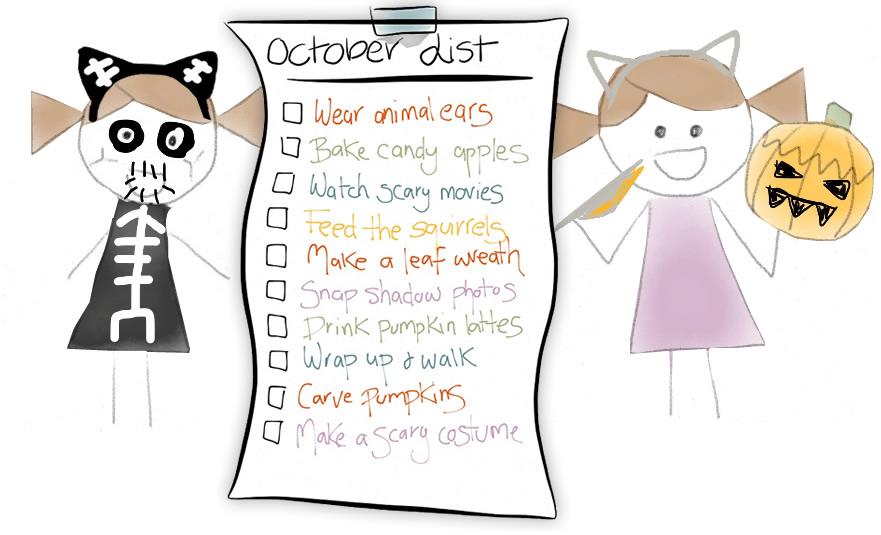 October List
Wear animal ears
Bake candy apples
Watch scary movies
Feed the squirrels
Make a leaf wreath
Snap shadow photos
Drink pumpkin lattes
Wrap up & walk
Carve pumpkins
Make a scary costume